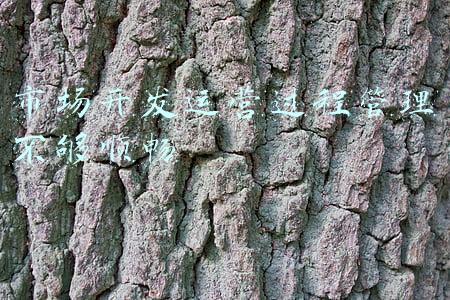 市场开发运营过程管理
不够顺畅